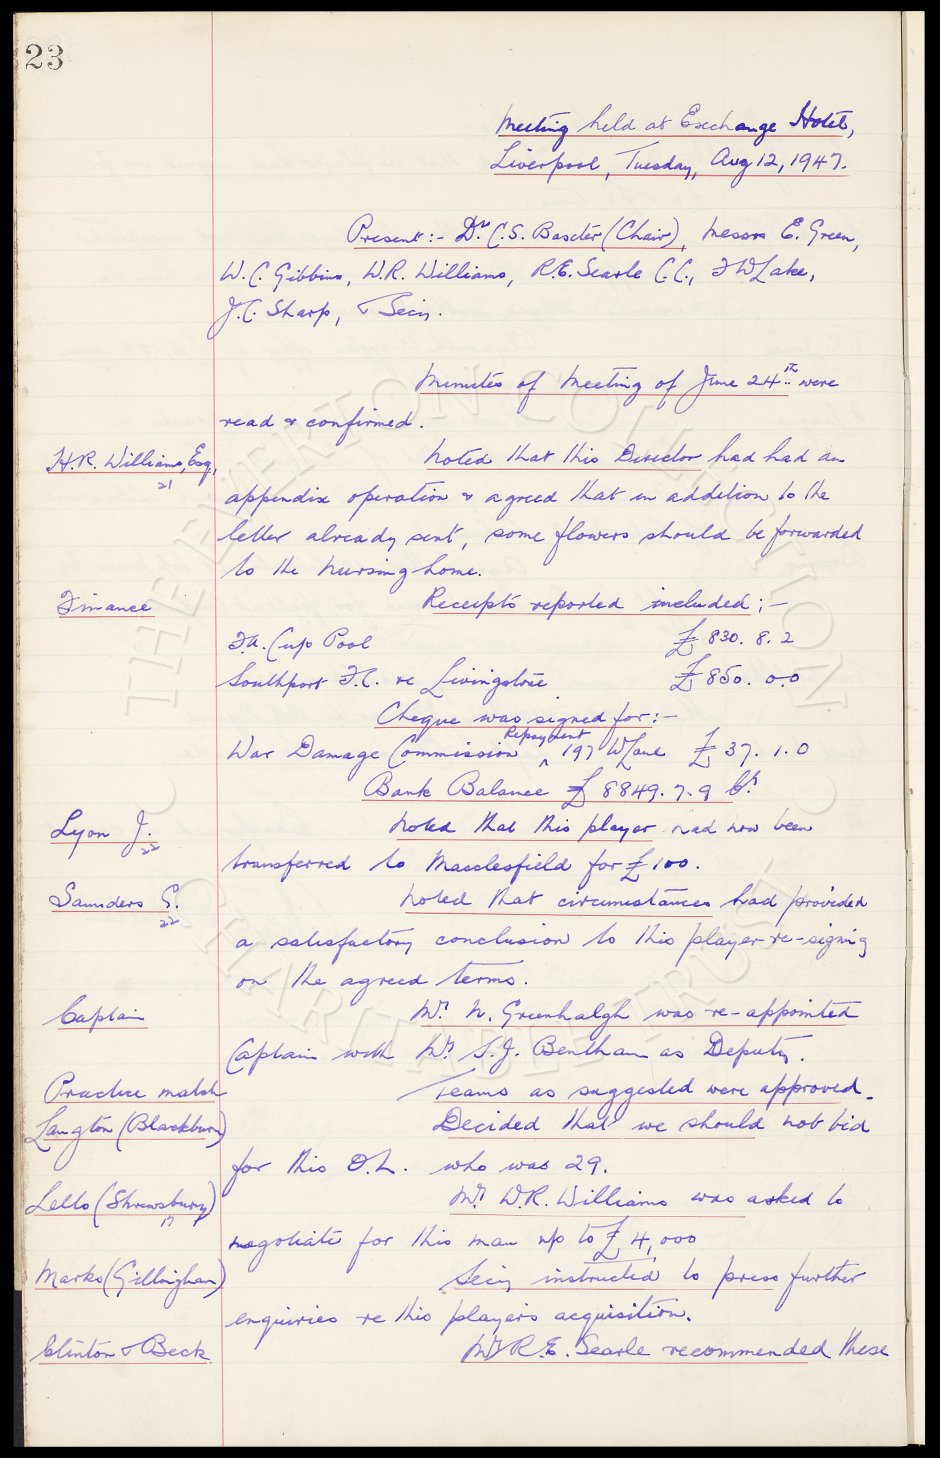 23
Meeting held at Exchange Hotel,
Liverpool, Tuesday, Aug 12, 1947.
Present:- Dr. C.S. Baxter (Chair), Messrs E. Green,
W.C. Gibbins, W.R. Williams, R.E. Searle C.C., F W Lake,
J.C. Sharp, & Secy.
Minutes of Meeting of June 24th were
read & confirmed.
H.R. Williams, Esq, 21 Noted that this Director had had an
appendix operation & agreed that in addition to the
letter already sent, some flowers should be forwarded
to the nursing home.
Finance Receipts reported included:-
F.A. Cup Pool £830. 8. 2
Southport F.C. re Livingstone £850. 0.0
Cheque was signed for:-
War Damage Commission Repayment 197 W Lane £37. 1. 0
Bank Balance £8849. 7. 9 Cr.
Lyon J. 22 Noted that this player had now been
transferred to Macclesfield for £100.
Saunders G. 22 Noted that circumstances had provided
a satisfactory conclusion to this player re-signing
on the agreed terms.
Captain Mr. N. Greenhalgh was re-appointed
Captain with Mr. S.J. Bentham as Deputy.
Practice match Teams as suggested were approved.
Langton (Blackburn) Decided that we should not bid
for this O.L. who was 29.
Lello (Shrewsbury) 17 Mr. W.R. Williams was asked to
negotiate for this man up to £4,000
Marks (Gillingham) Secy instructed to press further
enquiries re this players acquisition.
Clinton & Beck. Mr R.E. Searle recommended these
THE EVERTON COLLECTION CHARITABLE TRUST